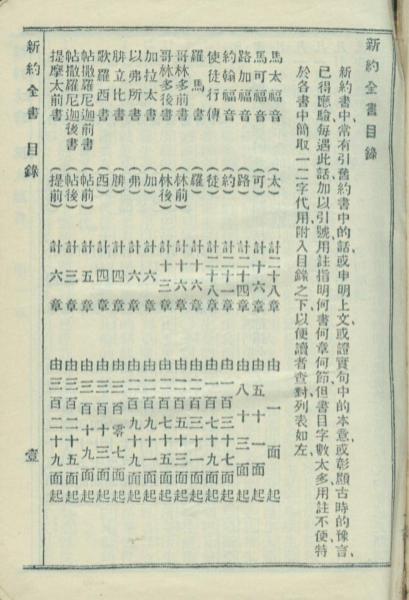 新約全書目錄
新約書中、常有引舊約書中的話、或申明上文、或證實句中的本意、或彰顯古時的豫言、
已得應驗、每遇此話、加以引號、用註指明何書何章何節、但書目字數太多、用註不便、特
於各書中簡取一二字代用、附入目錄之下、以便讀者查對、列表如左、
馬太福音 (太) 計二十八章 由一面起
馬可福音 (可) 計十六章 由五十一面起
路加福音 (路) 計二十四章 由八十三面起
約翰福音 (約) 計二十一章 由一百三十七面起
使徒行傳 (徒) 計二十八章 由一百七十九面起
羅馬書 (羅) 計十六章 由二百三十一面起
哥林多前書 (林前) 計十六章 由二百五十三面起
哥林多後書 (林後) 計十三章 由二百七十五面起
加拉太書 (加) 計六章 由二百九十一面起
以弗所書 (弗) 計六章 由二百九十九面起
腓立比書 (腓) 計四章 由三百零七面起
歌羅西書 (西) 計四章 由三百十三面起
帖撒羅尼迦前書 (帖前) 計五章 由三百十九面起
帖撒羅尼迦後書 (帖後) 計三章 由三百二十五面起
提摩太前書 (提前) 計六章 由三百二十九面起
新約全書 目錄 壹